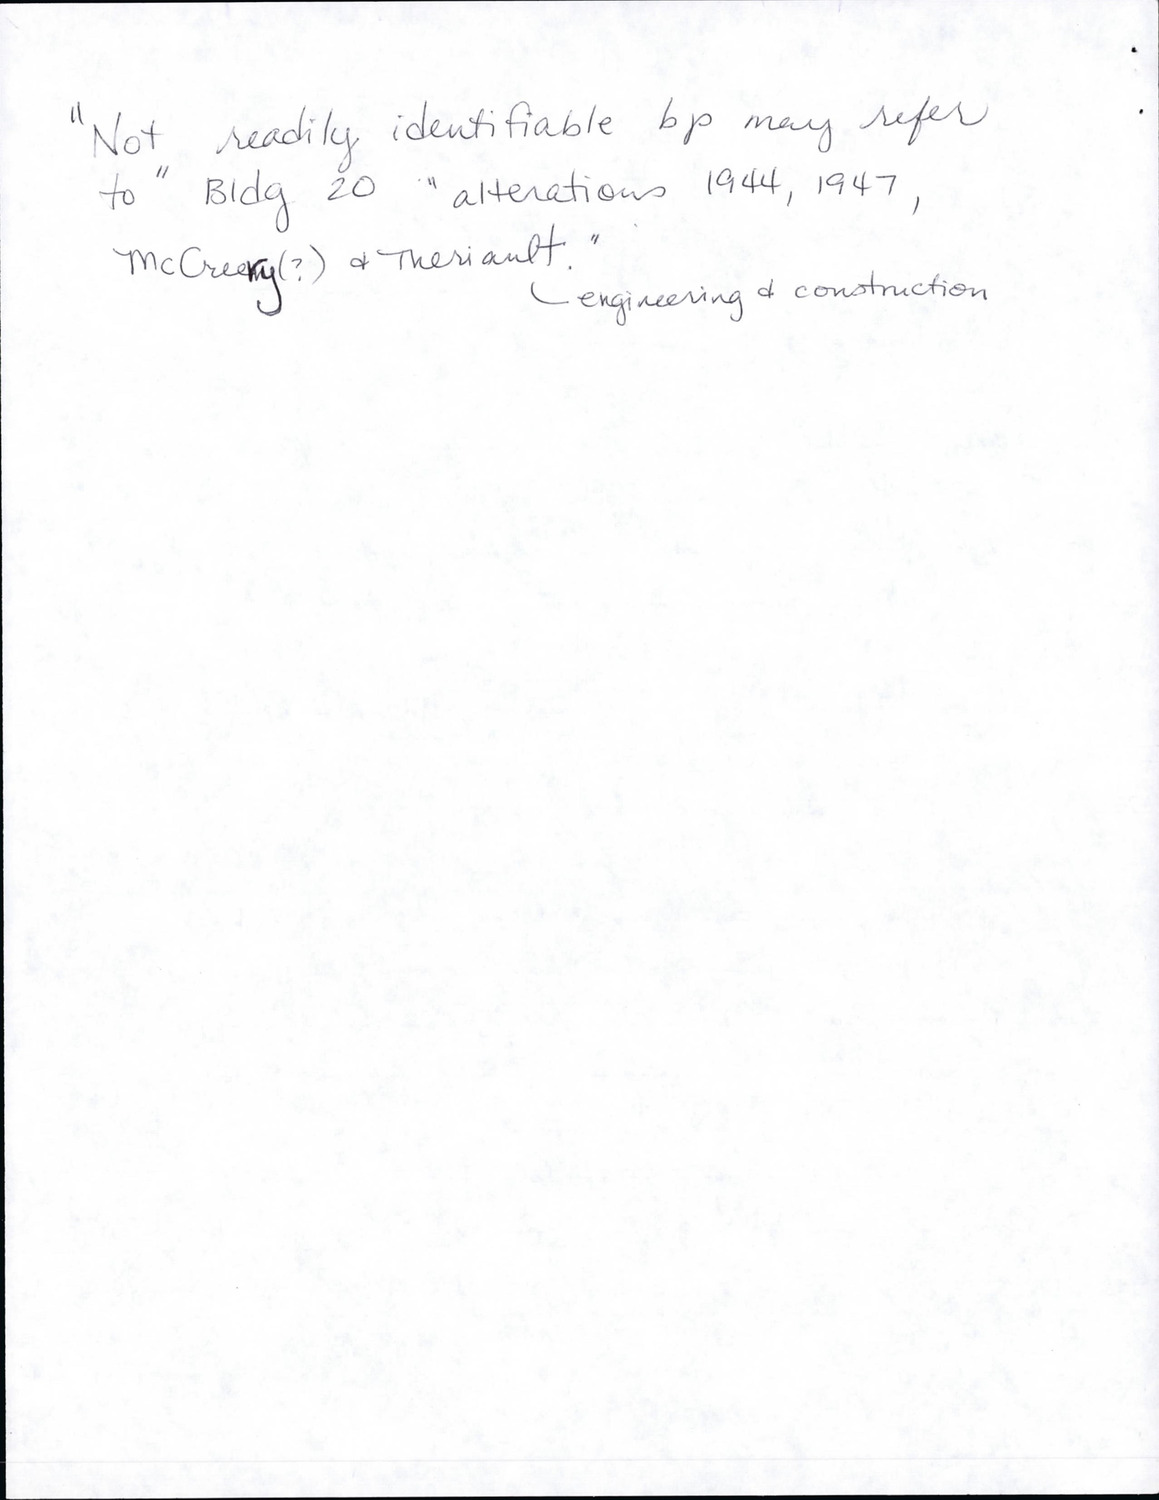 "Not readily identifiable bp may refer
to" Bldg 20 "alterations 1944, 1947,
McCreery(?) & Theriault."
engineering & construction